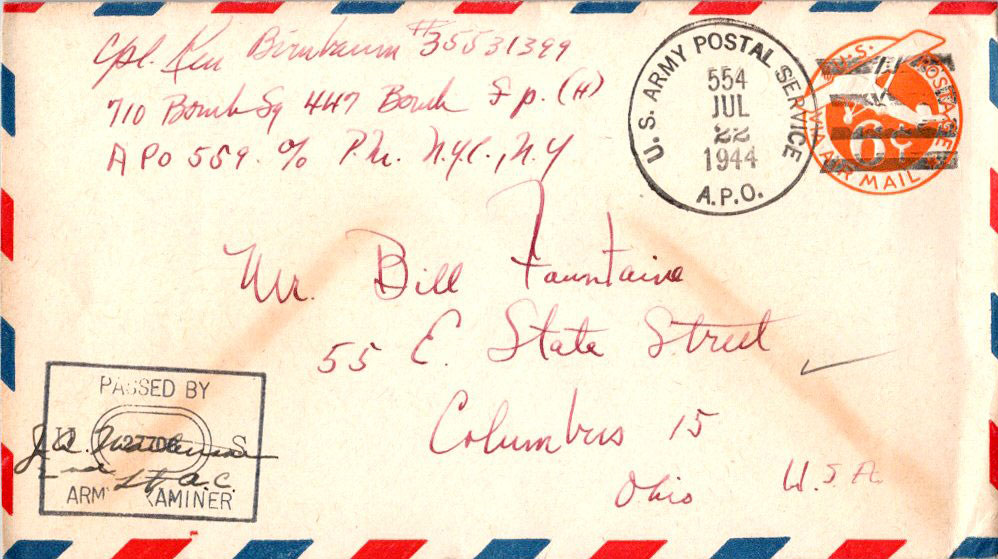 Cpl. Ken Birnbaum #35531399
710 Bomb Sq 447 Bomb Gp. (H)
APO 559. c/o P.M. N.Y.C., N.Y
U.S. ARMY POSTAL SERVICE
554
JUL
22
1944
A.P.O.
U.S. POSTAGE
6¢
VIA AIR MAIL
Mr. Bill Fountaine
55 E. State Street
Columbus 15
Ohio U.S.A.
PASSED BY
U S
ARMY EXAMINER
Lt. A.C.